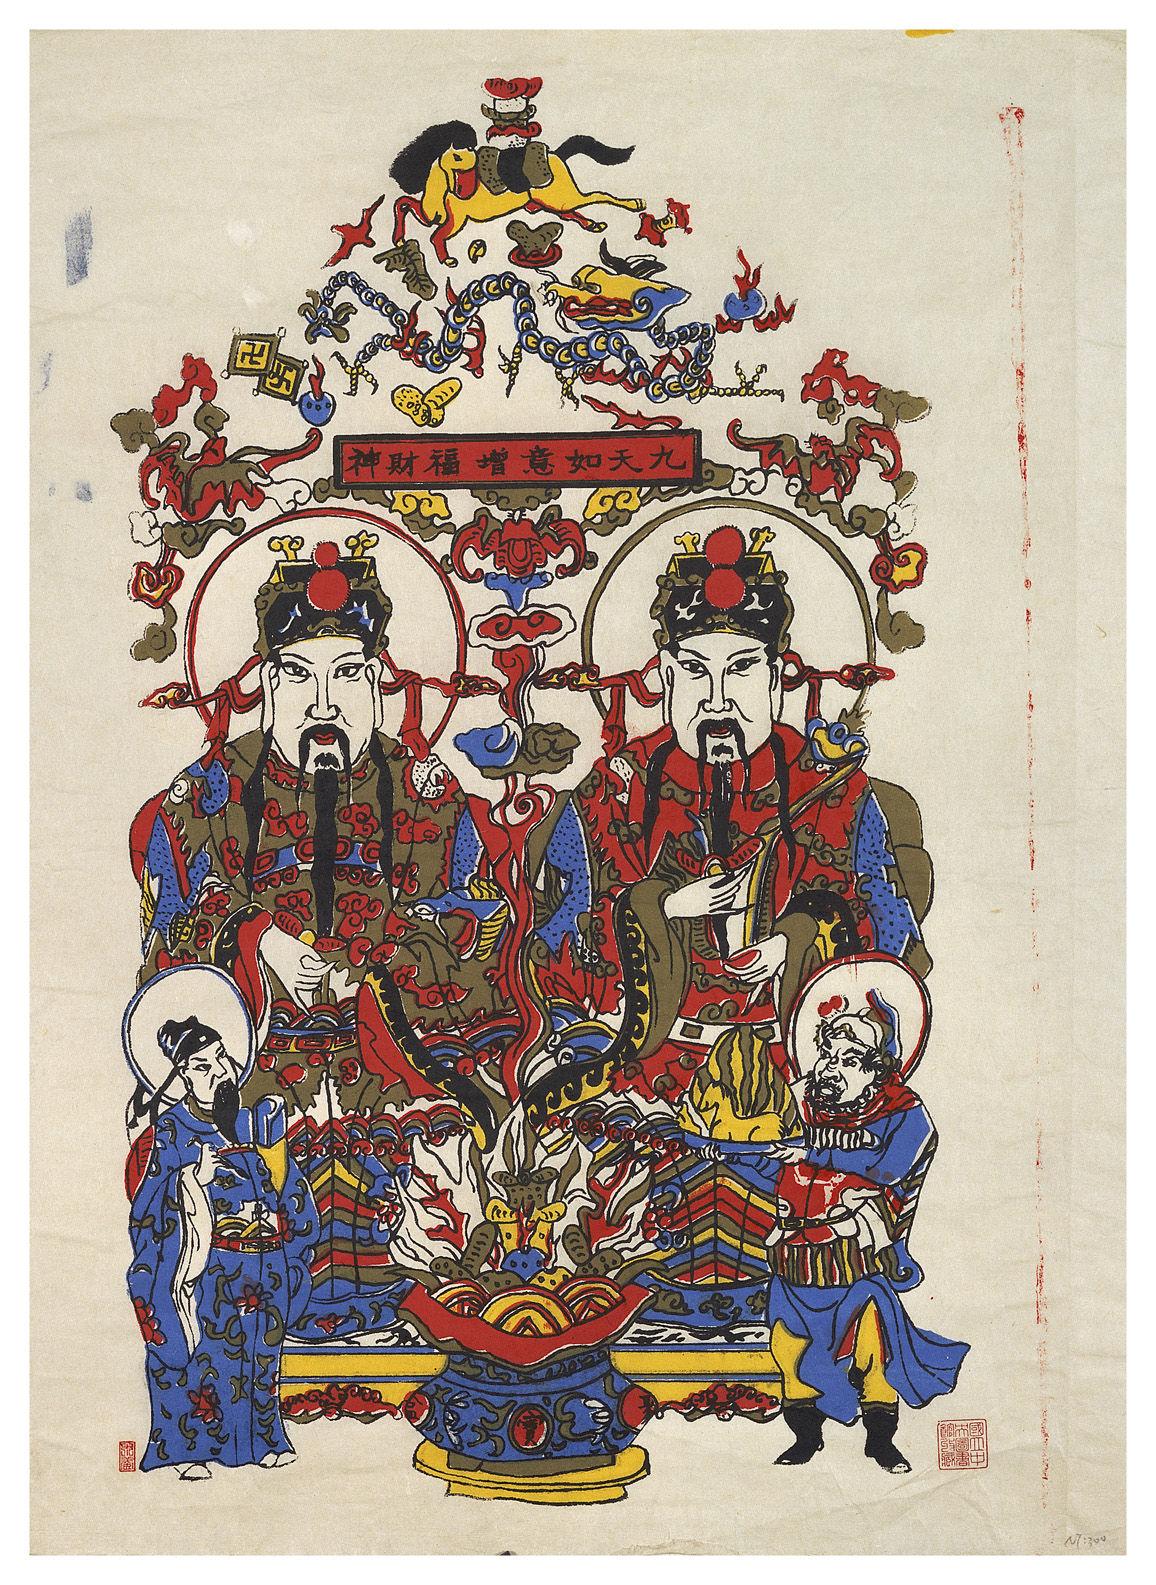 九天如意增福財神
卍
卐
國立中央圖書館收藏
N7:300